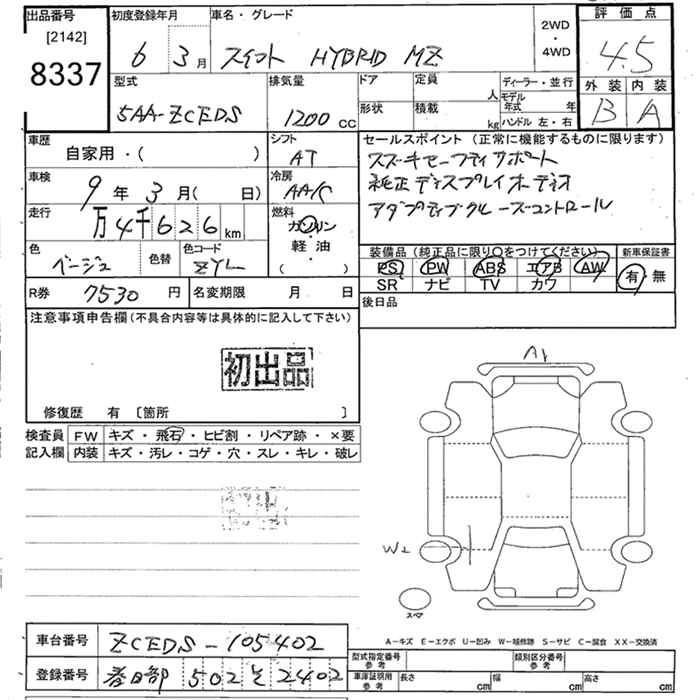 出品番号 初度登録年月 車名・グレード 2WD ・ 4WD 評価点
[2142]
8337
6 3月 スイフト HYBRID MZ 4.5
外装 内装
B A
型式 排気量 ドア 定員 人 ディーラー・並行
5AA-ZCEDS 1200 CC 形状 積載 kg モデル年式 年
ハンドル 左・右
車歴 自家用・( ) シフト AT
セールスポイント (正常に機能するものに限ります)
スズキセーフティサポート
純正ディスプレイオーディオ
アダプティブクルーズコントロール
車検 9年3月( 日) 冷房 AA/C
走行 万4千626km 燃料 ガソリン・軽油・( )
色 ベージュ 色替 色コード ZYL
装備品 (純正品に限り○をつけてください) 新車保証書
PS PW ABS エアB AW 有・無
SR ナビ TV カワ
R券 7530円 名変期限 月 日 後日品
注意事項申告欄 (不具合内容等は具体的に記入して下さい)
初出品
修復歴 有 〔箇所 〕
検査員記入欄 FW キズ・飛石・ヒビ割・リペア跡・×要
内装 キズ・汚レ・コゲ・穴・スレ・キレ・破レ
A1
W2
スペア
A-キズ E-エクボ U-凹み W-補修跡 S-サビ C-腐食 XX-交換済
車台番号 ZCEDS-105402
登録番号 春日部 502 そ 2402
型式指定番号 参考 類別区分番号 参考
車庫証明用 参考 長さ cm 幅 cm 高さ cm